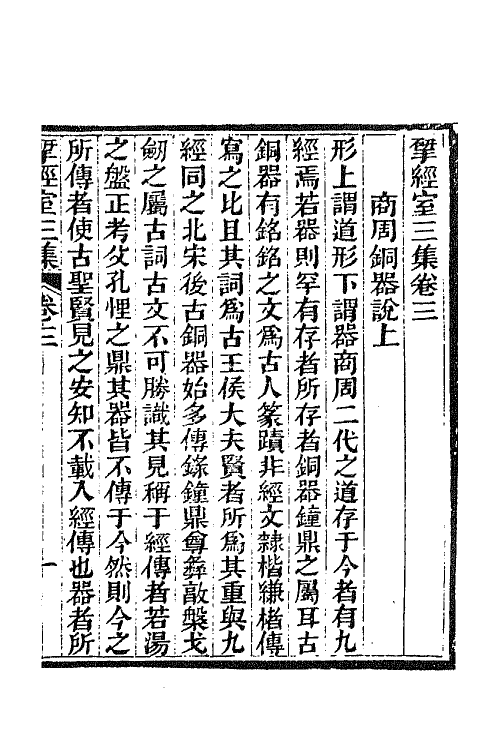 揅經室三集卷三
商周銅器說上
形上謂道形下謂器商周二代之道存于今者有九
經焉若器則罕有存者所存者銅器鐘鼎之屬耳古
銅器有銘銘之文爲古人篆蹟非經文隸楷縑楮傳
寫之比且其詞爲古王侯大夫賢者所爲其重與九
經同之北宋後古銅器始多傳錄鐘鼎尊彝敦槃戈
劒之屬古詞古文不可勝識其見稱于經傳者若湯
之盤正考父孔悝之鼎其器皆不傳于今然則今之
所傳者使古聖賢見之安知不載入經傳也器者所
揅經室三集 卷三 一